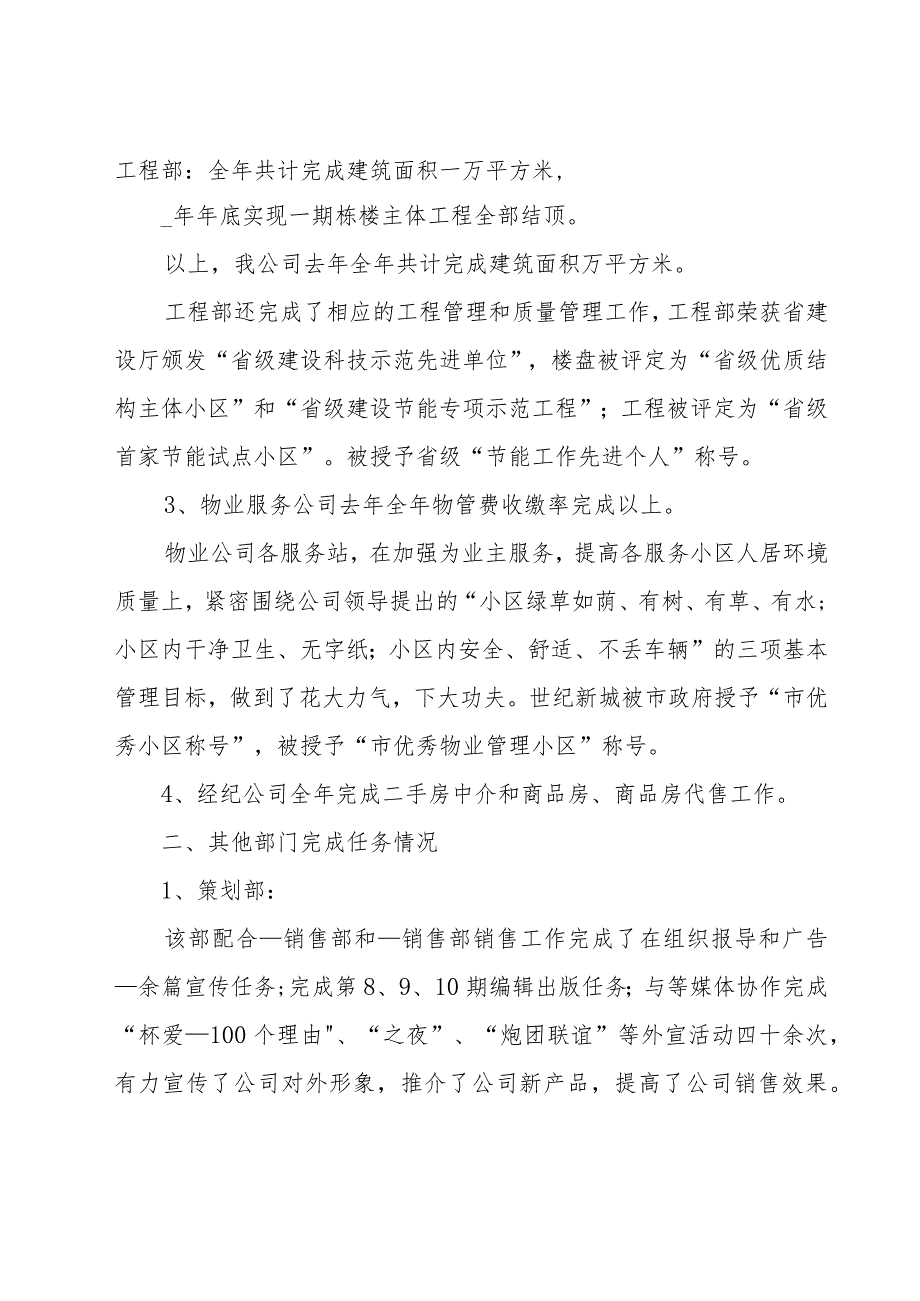 工程部：全年共计完成建筑面积一万平方米，
_年年底实现一期栋楼主体工程全部结顶。
以上，我公司去年全年共计完成建筑面积万平方米。
工程部还完成了相应的工程管理和质量管理工作，工程部荣获省建
设厅颁发“省级建设科技示范先进单位”，楼盘被评定为“省级优质结
构主体小区”和“省级建设节能专项示范工程”；工程被评定为“省级
首家节能试点小区”。被授予省级“节能工作先进个人”称号。
3、物业服务公司去年全年物管费收缴率完成以上。
物业公司各服务站，在加强为业主服务，提高各服务小区人居环境
质量上，紧密围绕公司领导提出的“小区绿草如荫、有树、有草、有水；
小区内干净卫生、无字纸；小区内安全、舒适、不丢车辆”的三项基本
管理目标，做到了花大力气，下大功夫。世纪新城被市政府授予“市优
秀小区称号”，被授予“市优秀物业管理小区”称号。
4、经纪公司全年完成二手房中介和商品房、商品房代售工作。
二、其他部门完成任务情况
1、策划部：
该部配合—销售部和—销售部销售工作完成了在组织报导和广告
—余篇宣传任务;完成第8、9、10期编辑出版任务；与等媒体协作完成
“杯爱—100个理由"、“之夜”、“炮团联谊”等外宣活动四十余次，
有力宣传了公司对外形象，推介了公司新产品，提高了公司销售效果。